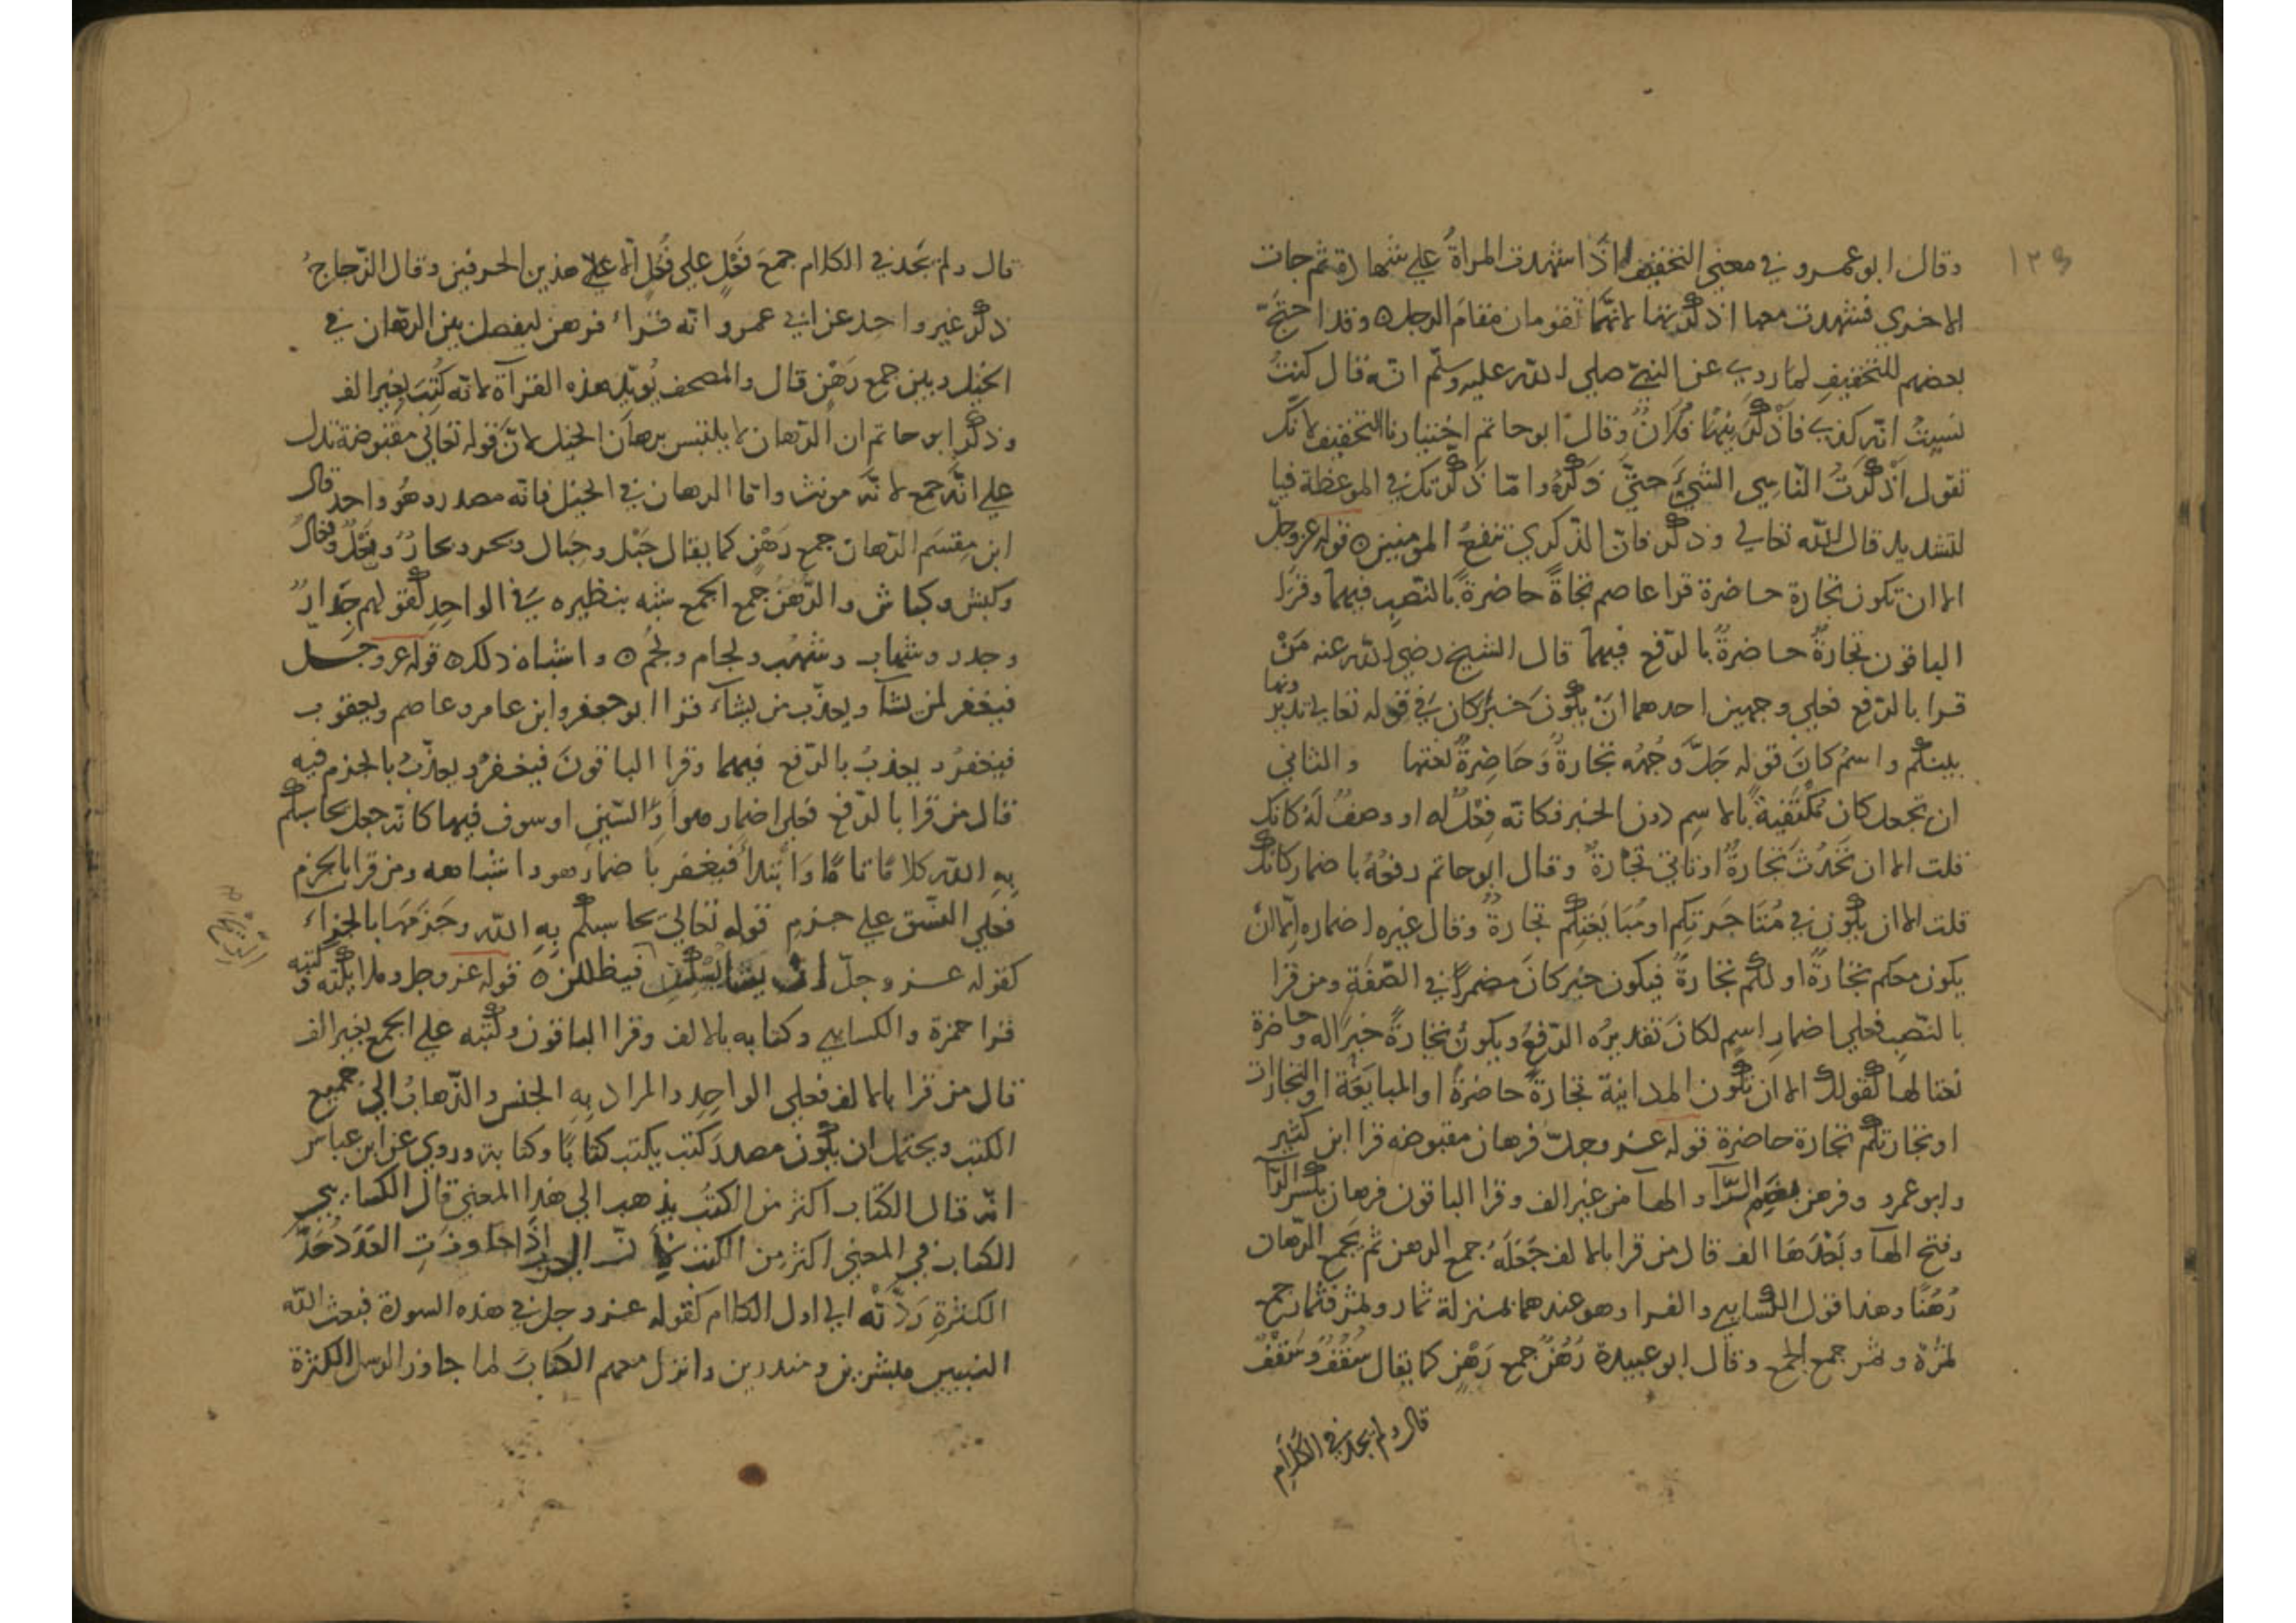 ١٢٥
وقال ابو عمرو في معنى التخفيف اذا اشهدت المراة علي شهادة ثم جات
الاخري فشهدت معها اذكرتها لانهما تقومان مقام الرجل ٥ وقد احتج
بعضهم للتخفيف لما روي عن النبي صلي الله عليه وسلم انه قال كنت
نسيت اية كذى فاذكرنيها فلان وقال ابو حاتم اختيارنا التخفيف لانك
تقول اذكرت الناسي الشيء حتي ذكره واما ذكرتك في الموعظة فبا
لتشديد قال الله تعالي وذكر فان الذكري تنفع المومنين ٥ قوله عز وجل
الا ان تكون تجارة حاضرة قرا عاصم تجاة حاضرة بالنصب فيهما وقرا
الباقون تجارة حاضرة بالرفع فيهما قال الشيخ رضي الله عنه من
قرا بالرفع فعلي وجهين احدهما ان يكون خبر كان في قوله تعالي تديرونها
بينكم واسم كان قوله جل وجهه تجارة وحاضرة نعتها والثاني
ان تجعل كان مكتفية بالاسم دون الخبر فكانه فعل له او وصف له كانك
قلت الا ان تحدث تجارة او تاتي تجارة وقال ابو حاتم رفعه باضمار كانك
قلت الا ان يكون في متاجرتكم او مبايعتكم تجارة وقال غيره اضماره الا ان
يكون معكم تجارة او لكم تجارة فيكون خبر كان مضمرا في الصفة ومن قرا
بالنصب فعلي اضمار اسم لكان تقديره الرفع ويكون تجارة خبرا له وحاضرة
نعتا لها كقولك الا ان تكون المداينة تجارة حاضرة او المبايعة او التجارات
او تجارتكم تجارة حاضرة قوله عز وجل فرهان مقبوضه قرا ابن كثير
وابو عمرو وفرهن بضم الرآ والهآ من غير الف وقرا الباقون فرهان بكسر الرآ
وفتح الهآ وبعدها الف قال من قرا بالالف جعله جمع الرهن ثم يجمع الرهان
رهنا وهذا قول الكسايي والفرا وهو عندهما بمنزلة ثمار وثمر فثمار جمع
ثمرة وثمر جمع الجمع وقال ابو عبيدة رهن جمع رهن كما يقال سقف وسقف
قال ولم يجد في الكلام
قال ولم يجد في الكلام جمع فعل علي فعل الا علي هذين الحرفين وقال الزجاج
ذكر غير واحد عن ابي عمرو انه قراء فرهن ليفصل بين الرهان في
الخيل وبين جمع رهن قال والمصحف يويد هذه القرآة لانه كتب بغير الف
وذكر ابو حاتم ان الرهان لا يلتبس برهان الخيل لان قوله تعالي مقبوضة تدل
علي انه جمع لانه مونث واما الرهان في الخيل فانه مصدر وهو واحد قال
ابن مقسم الرهان جمع رهن كما يقال حبل وحبال وبحر وبحار ونعل ونعال
وكبش وكباش والرهن جمع الجمع شبه بنظيره في الواحد كقولهم جدار
وجدر وشهاب وشهب ولجام ولجم ٥ واشباه ذلك ٥ قوله عز وجل
فيغفر لمن يشآ ويعذب من يشآء قرا ابو جعفر وابن عامر وعاصم ويعقوب
فيغفر ويعذب بالرفع فيهما وقرا الباقون فيغفر ويعذب بالجزم فيه
قال من قرا بالرفع فعلي اضمار هو او السين او سوف فيها كانه جعل يحاسبكم
به الله كلاما تاما وابتدأ فيغفر باضمار هو واشباهه ومن قرا بالجزم
فعلي النسق علي جزم قوله تعالي يحاسبكم به الله وجزمها بالجزاء
كقوله عز وجل ان يشا يسكن فيظللن ٥ قوله عز وجل وملايكته وكتبه
قرا حمزة والكسايي وكتابه بالالف وقرا الباقون وكتبه علي الجمع بغير الف
قال من قرا بالالف فعلي الواحد والمراد به الجنس والذهاب الي جميع
الكتب ويحتمل ان يكون مصدر كتب يكتب كتابا وكتابة وروي عن ابن عباس
انه قال الكتاب اكثر من الكتب يذهب الي هذا المعني قال الكسايي
الكتاب في المعني اكثر من الكتب لان العرب اذا جاوزت العدد حد
الكثرة ردته الي اول الكلام كقوله عز وجل في هذه السورة فبعث الله
النبيين مبشرين ومنذرين وانزل معهم الكتاب لما جاوز الرسل الكثرة